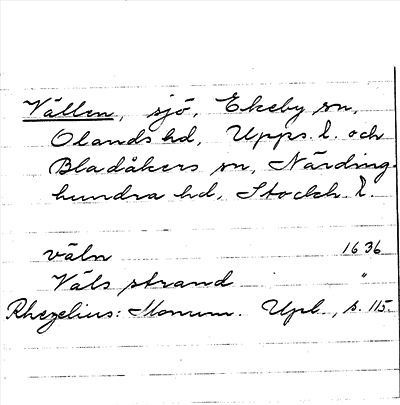 Vällen, sjö, Ekeby sn,
Olands hd, Upps. l. och
Bladåkers sn, Närding-
hundra hd, Stockh. l.
väln 1636
Väls strand "
Rhezelius: Monum. Upl., s. 115.